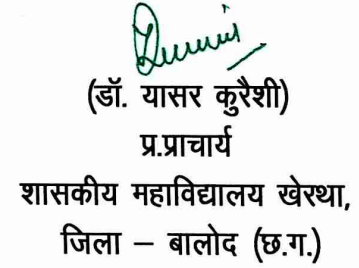 (डॉ. यासर कुरैशी)
प्र.प्राचार्य
शासकीय महाविद्यालय खेरथा,
जिला – बालोद (छ.ग.)